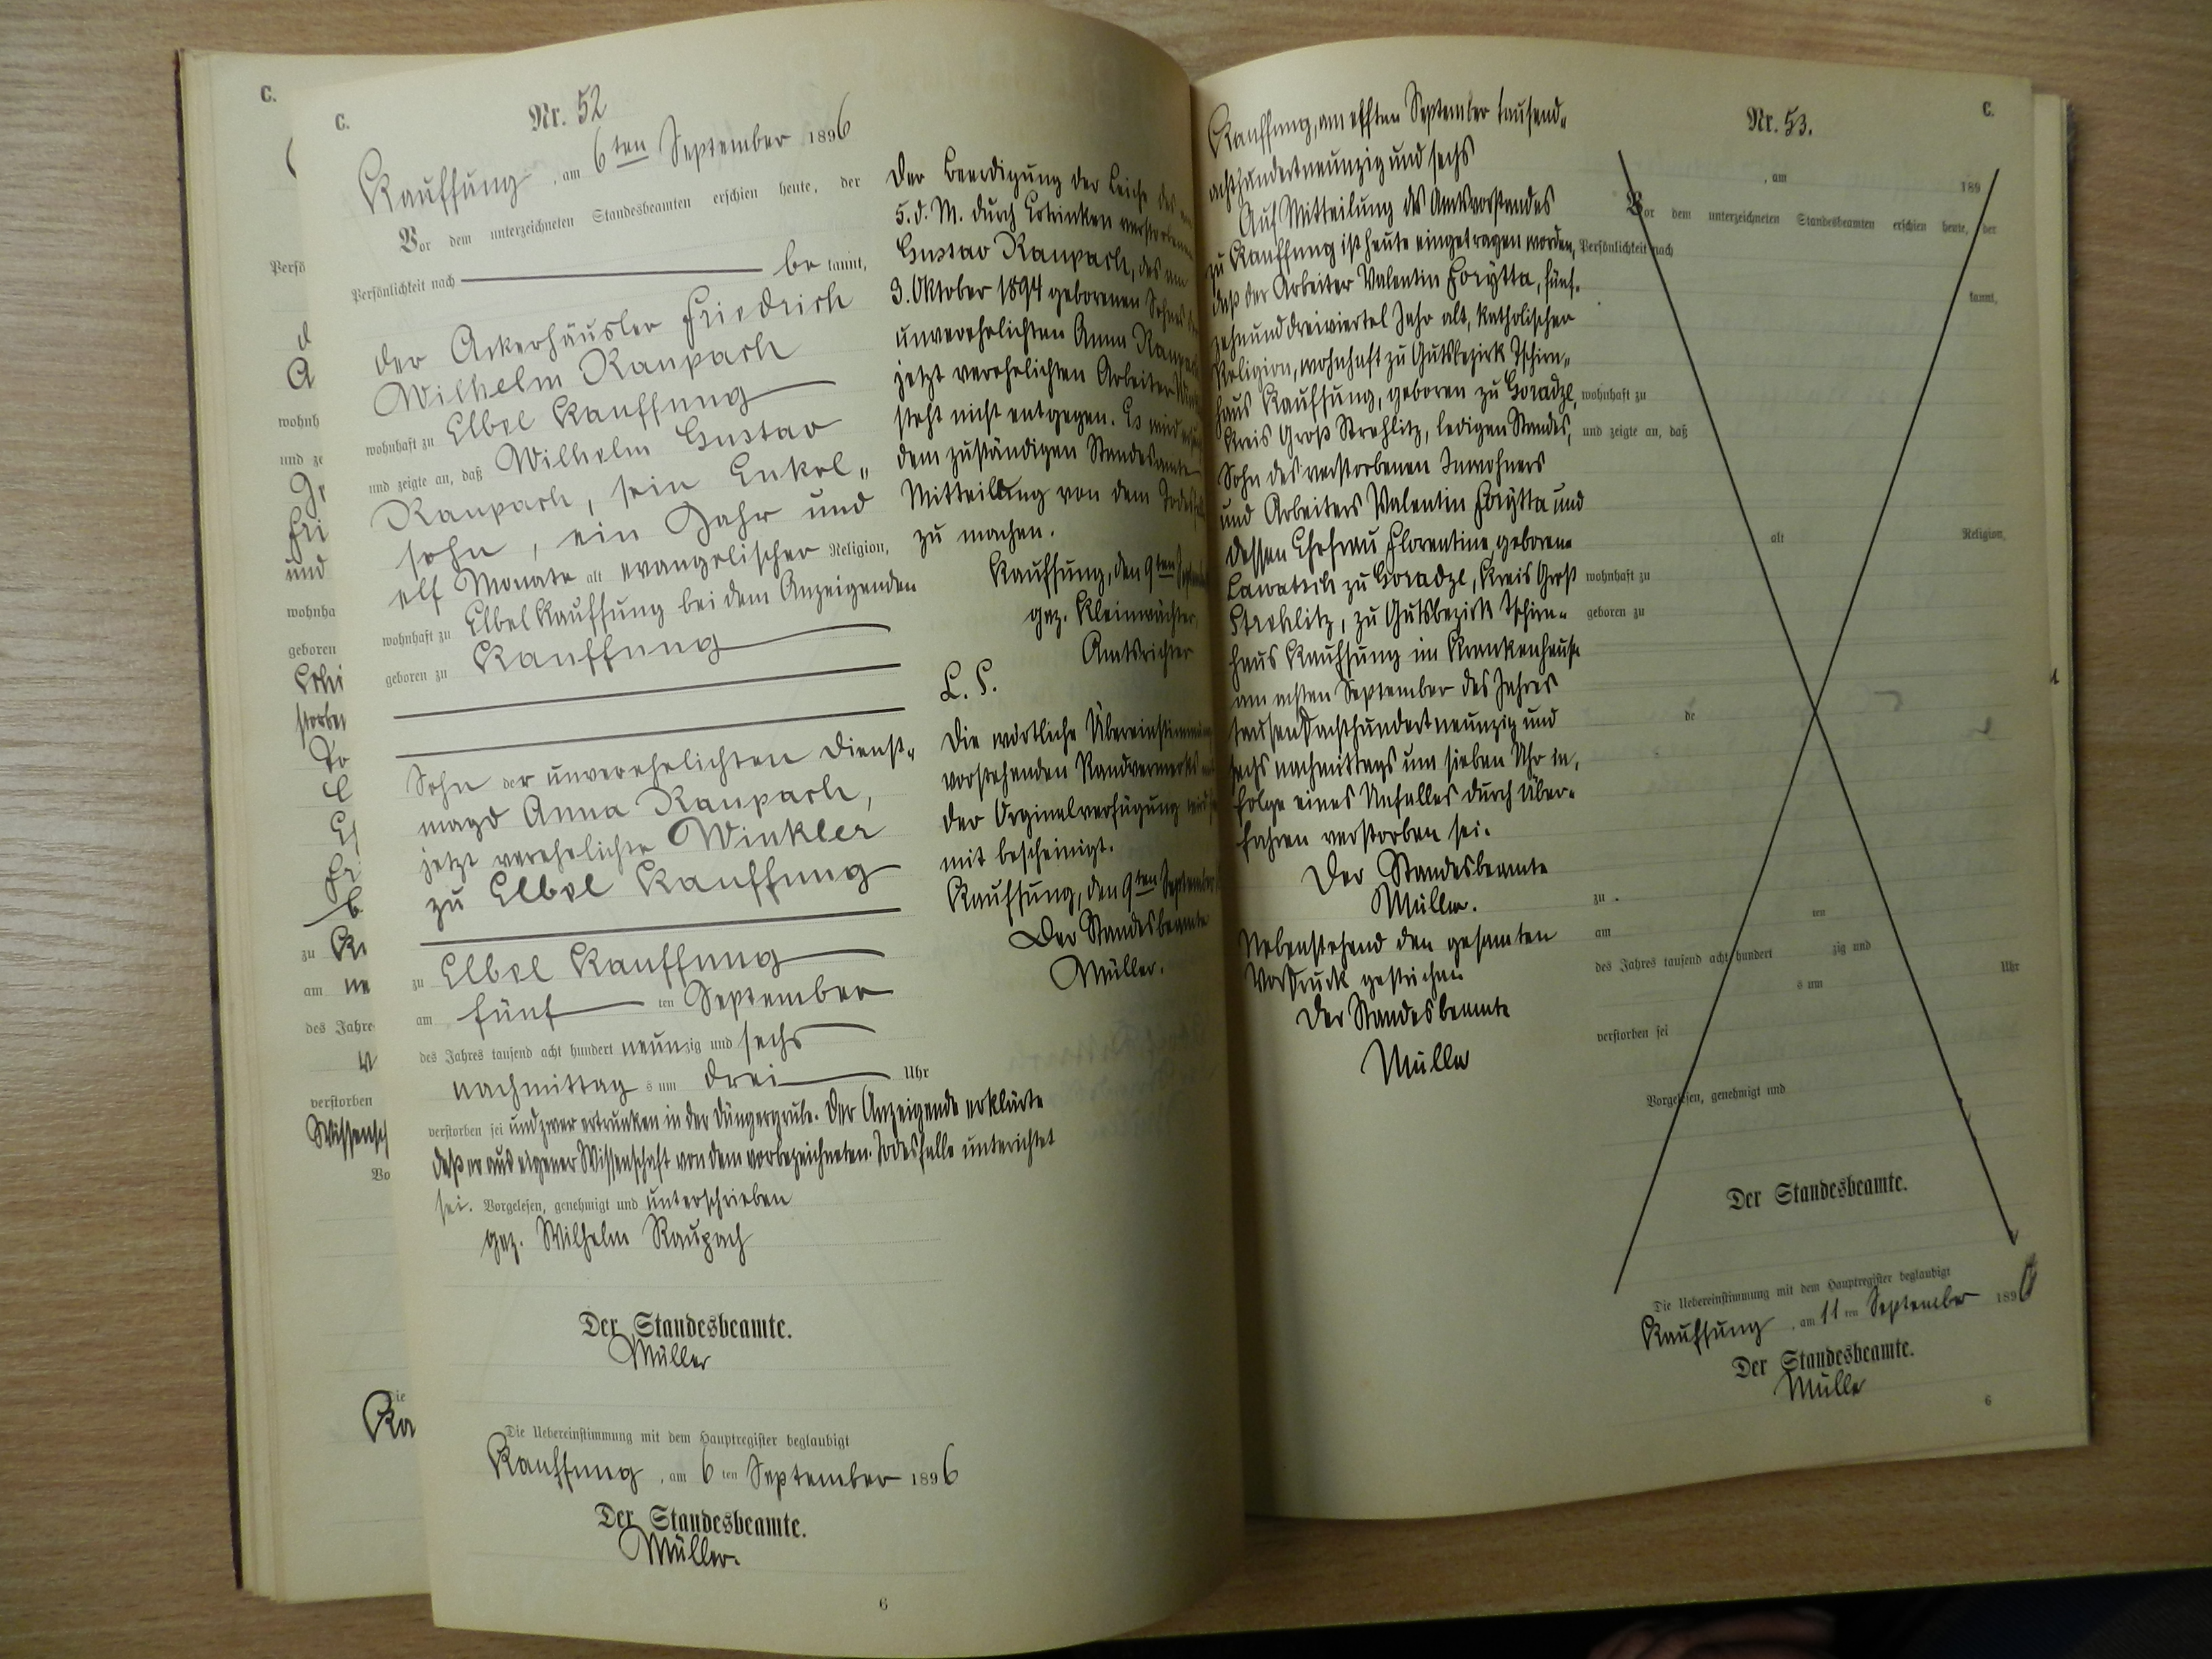 C.
Nr. 52
Kauffung, am 6ten September 1896
Vor dem unterzeichneten Standesbeamten erschien heute, der
Persönlichkeit nach be kannt,
der Ackerhäusler Friedrich
Wilhelm Raupach
wohnhaft zu Elbel Kauffung
und zeigte an, daß Wilhelm Gustav
Raupach, sein Enkel„
sohn, ein Jahr und
elf Monate alt evangelischer Religion,
wohnhaft zu Elbel Kauffung bei dem Anzeigenden
geboren zu Kauffung
Sohn der unverehelichten Dienst„
magd Anna Raupach,
jetzt verehelichte Winkler
zu Elbel Kauffung
zu Elbel Kauffung
am fünf ten September
des Jahres tausend acht hundert neunzig und sechs
nachmittag s um drei Uhr
verstorben sei und zwar ertrunken in der Düngergrube. Der Anzeigende erklärte
daß er aus eigener Wissenschaft von dem vorbezeichneten Todesfalle unterichtet
sei. Vorgelesen, genehmigt und unterschrieben
gez. Wilhelm Raupach
Der Standesbeamte.
Müller
Die Uebereinstimmung mit dem Hauptregister beglaubigt
Kauffung, am 6 ten September 1896
Der Standesbeamte.
Müller.
6
Der Beerdigung der Leiche des
5. d. M. durch Ertrinken verstorbenen
Gustav Raupach, des am
3. Oktober 1894 geborenen Sohnes
unverehelichten Anna
jetzt verehelichten Arbeiter
steht nicht entgegen. Es wird
dem zuständigen Standesamte
Mitteilung von dem
zu machen.
Kauffung, den 9ten
gez. Kleinwächter
Amtsrichter
L. S.
Die wörtliche Übereinstimmung
vorstehenden Randvermerks
der Orginalverfügung
mit bescheinigt.
Kauffung, den 9ten September
Der Standesbeamte
Müller.
Kauffung, am elften September tausend„
achthundertneunzig und sechs
Auf Mitteilung des Amtsvorstandes
zu Kauffung ist heute eingetragen worden,
daß der Arbeiter Valentin Forÿtta, fünf„
zehnunddreiviertel Jahr alt, katholischer
Religion, wohnhaft zu Gutsbezirk Tschirn„
haus Kauffung, geboren zu Goradze,
Kreis Groß Strehlitz, ledigen Standes,
Sohn des verstorbenen Inwohners
und Arbeiters Valentin Forÿtta und
dessen Ehefrau Florentine, geborene
zu Goradze, Kreis Groß
Strehlitz, zu Gutsbezirk Tschirn„
haus Kauffung im Krankenhause
am achten September des Jahres
tausendachthundertneunzig und
sechs nachmittags um sieben Uhr in„
folge eines Unfalles durch Über„
fahren verstorben sei.
Der Standesbeamte
Müller.
Nebenstehend den gesamten
Vordruck gestrichen
Der Standesbeamte
Müller
C.
Nr. 53.
, am 189
Vor dem unterzeichneten Standesbeamten erschien heute, der
Persönlichkeit nach
kannt,
wohnhaft zu
und zeigte an, daß
alt Religion,
wohnhaft zu
geboren zu
de
zu
am ten
des Jahres tausend acht hundert zig und
s um Uhr
verstorben sei
Vorgelesen, genehmigt und
Der Standesbeamte.
Die Uebereinstimmung mit dem Hauptregister beglaubigt
Kauffung, am 11 ten September 1896
Der Standesbeamte.
Müller
6